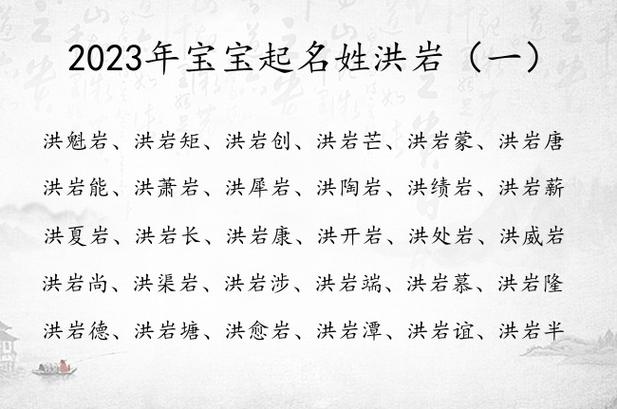 2023年宝宝起名姓洪岩（一）
洪魁岩、洪岩矩、洪岩创、洪岩芒、洪岩蒙、洪岩唐
洪岩能、洪萧岩、洪犀岩、洪陶岩、洪绩岩、洪岩薪
洪夏岩、洪岩长、洪岩康、洪开岩、洪处岩、洪威岩
洪岩尚、洪渠岩、洪岩涉、洪岩端、洪岩慕、洪岩隆
洪岩德、洪岩塘、洪愈岩、洪岩潭、洪岩谊、洪岩半